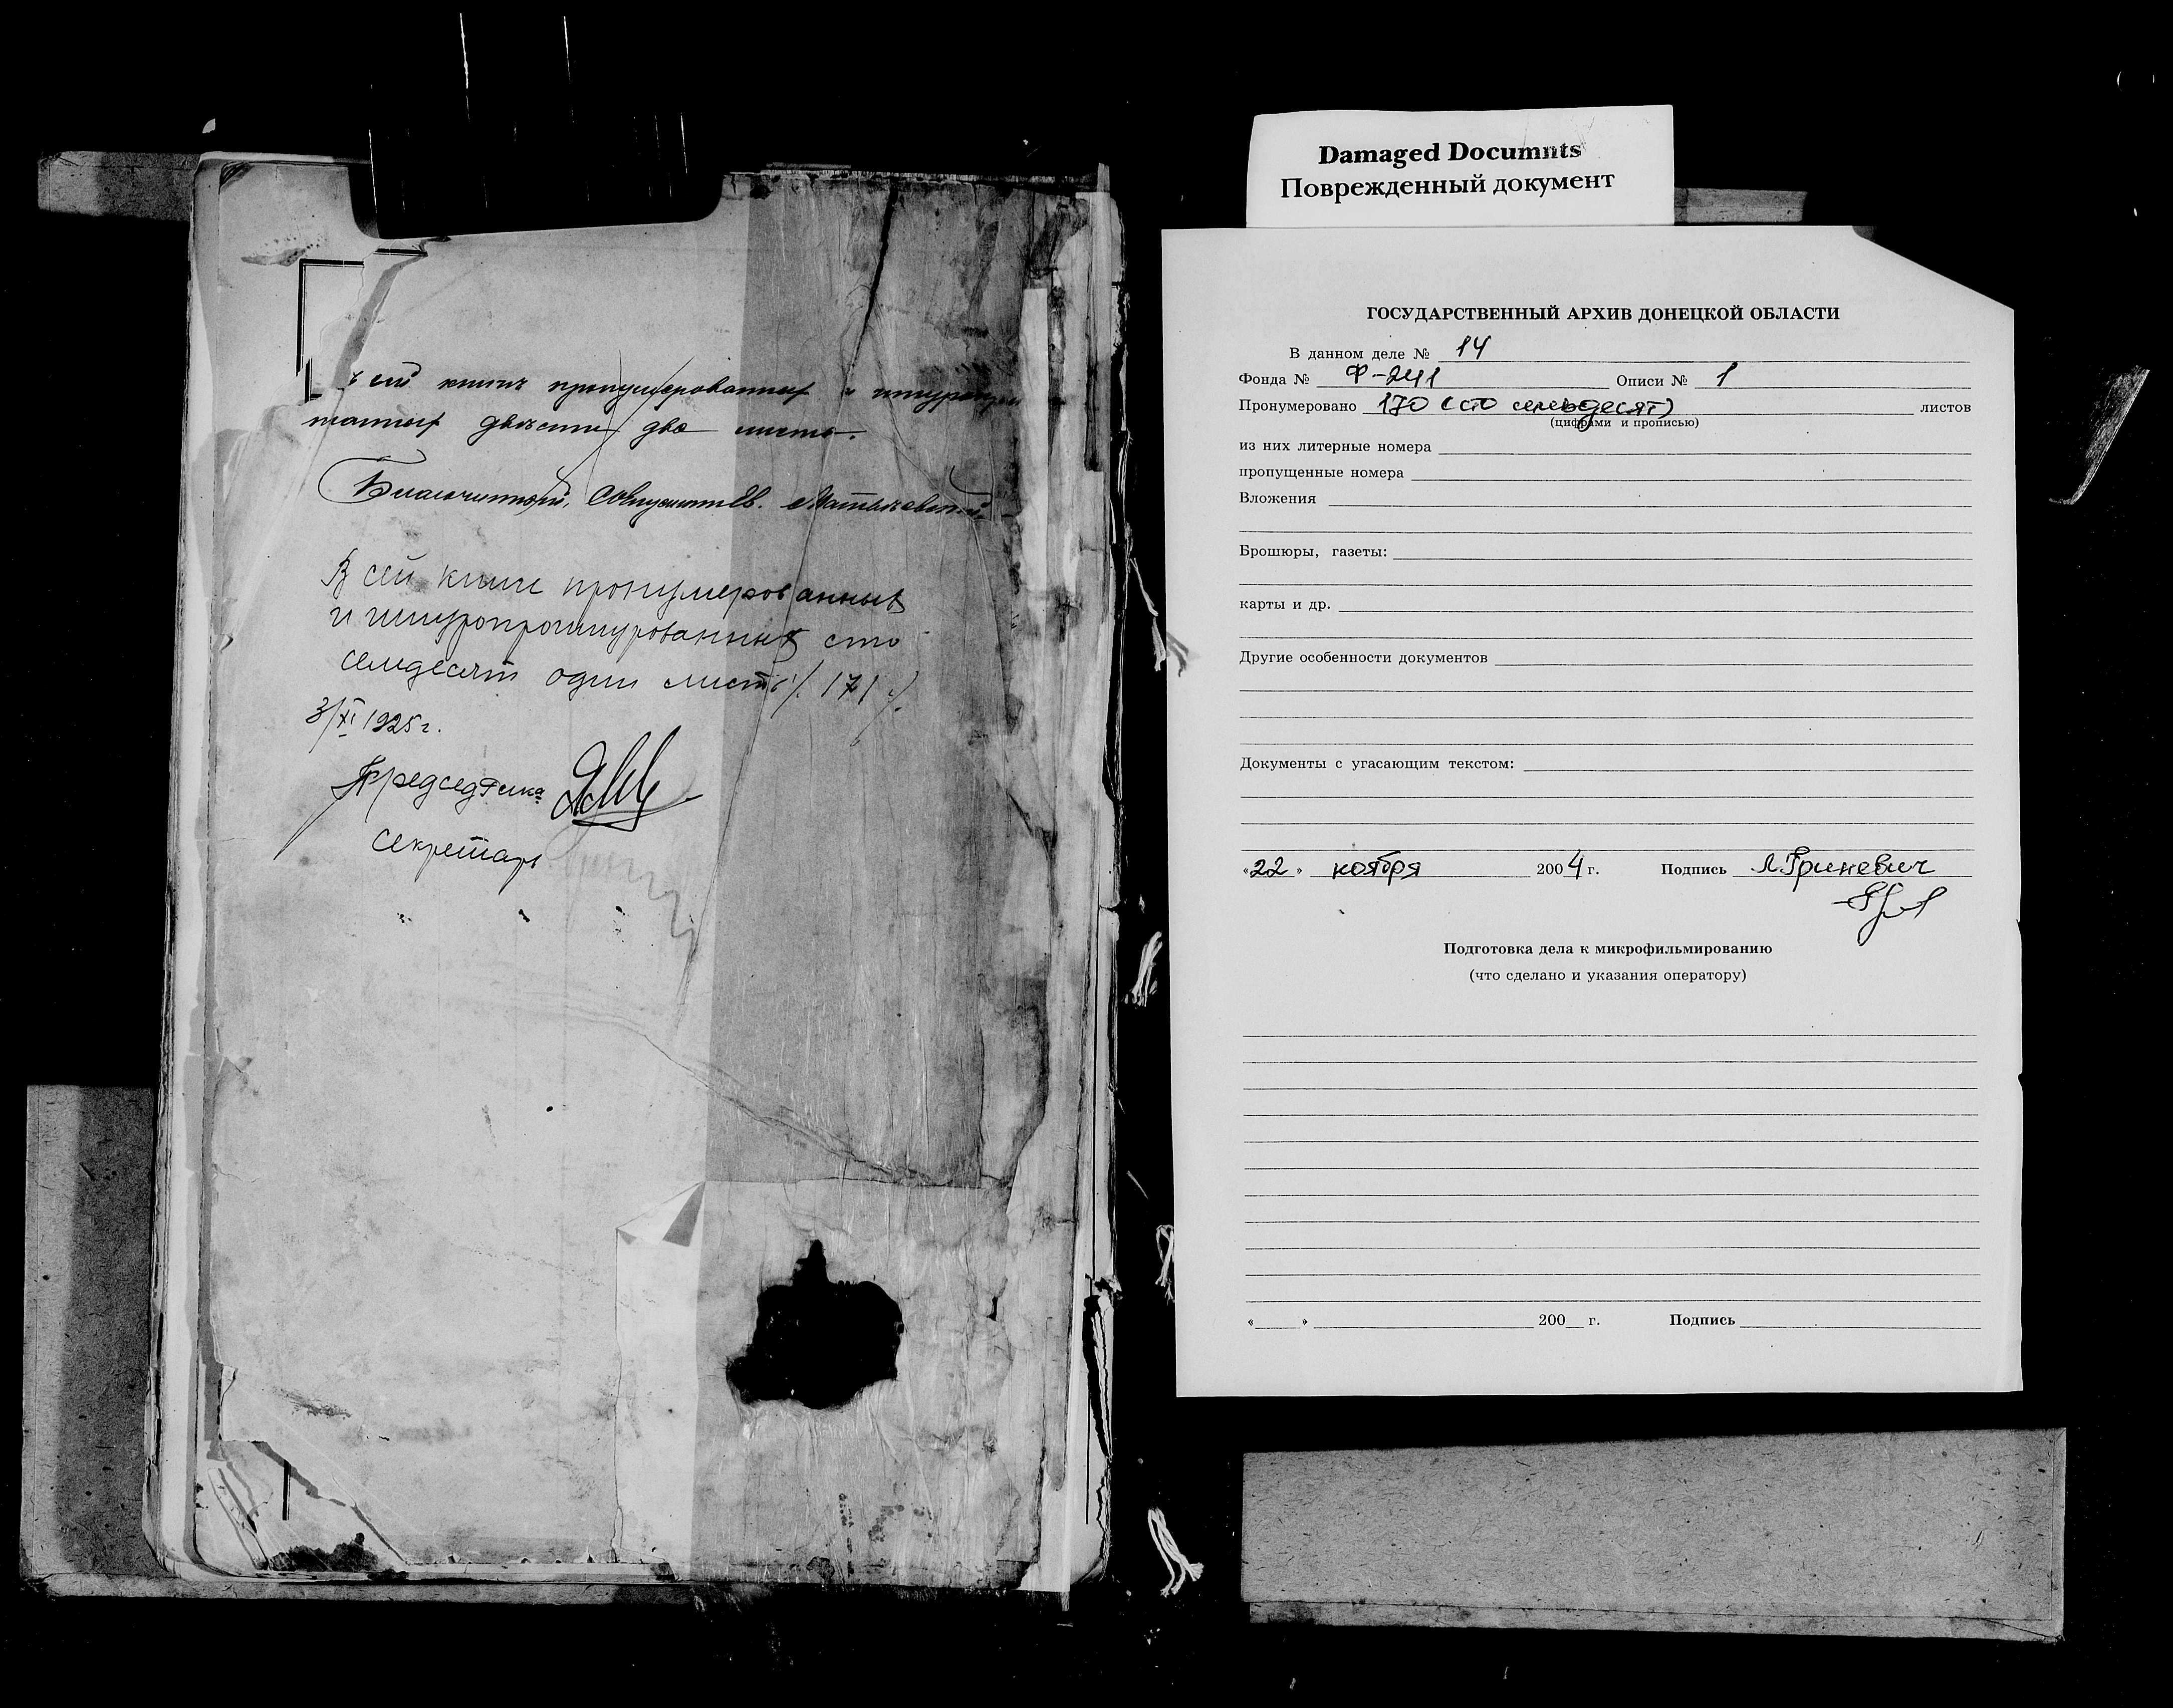 ъ сей книгѣ пронумерованных и шнуро
танных двѣсти два листа.
Благочинный, Священникъ
В сей книге пронумерованных
и шнуропрошнурованных сто
семдесят один листъ /. 171 /.
3/XI 1925 г.
Председателъ
Секретарь
Damaged Documnts
Поврежденный документ
ГОСУДАРСТВЕННЫЙ АРХИВ ДОНЕЦКОЙ ОБЛАСТИ
В данном деле № 14
Фонда № Ф-241 Описи № 1
Пронумеровано 170 (сто семьдесят) листов
(цифрами и прописью)
из них литерные номера
пропущенные номера
Вложения
Брошюры, газеты:
карты и др.
Другие особенности документов
Документы с угасающим текстом:
«22» ноября 2004 г. Подпись Л.Гриневич
Подготовка дела к микрофильмированию
(что сделано и указания оператору)
« » 200 г. Подпись